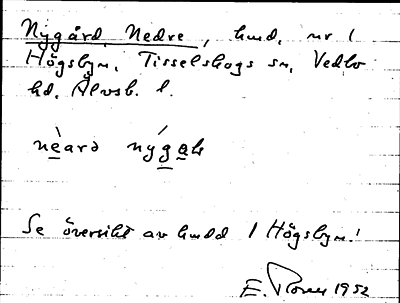 Nygård, Nedre, hmd. nr 1
Högsbyn, Tisselskogs sn, Vedbo
hd. Älvsb. l.
Se översikt av hmdd i Högsbyn!
E. 1952